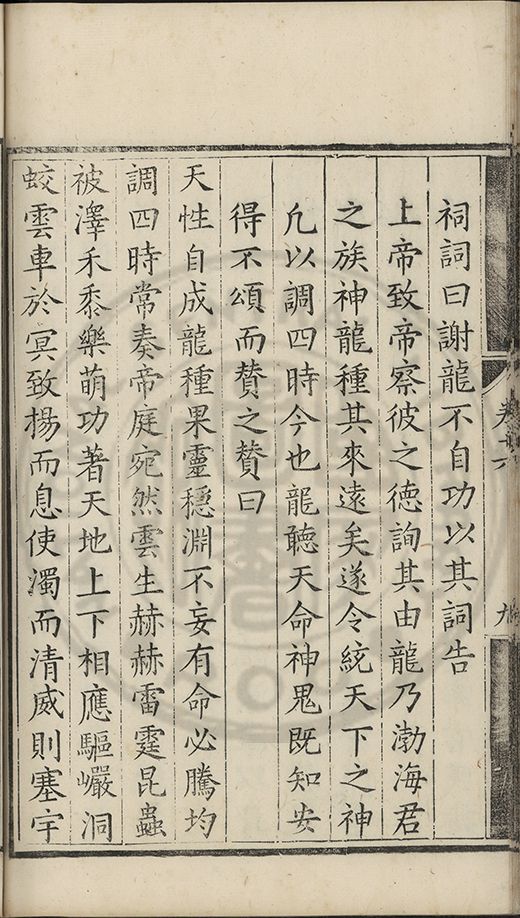 祠詞曰謝龍不自功以其詞告
上帝致帝察彼之德詢其由龍乃渤海君
之族神龍種其來遠矣遂令統天下之神
凢以調四時今也龍聽天命神鬼既知安
得不頌而贊之贊曰
天性自成龍種果靈穩淵不妄有命必騰均
調四時常奏帝庭宛然雲生赫赫雷霆昆蟲
被澤禾黍樂萌功著天地上下相應驅巖洞
蛟雲車於冥致揚而息使濁而清威則塞宇
卷十六
九